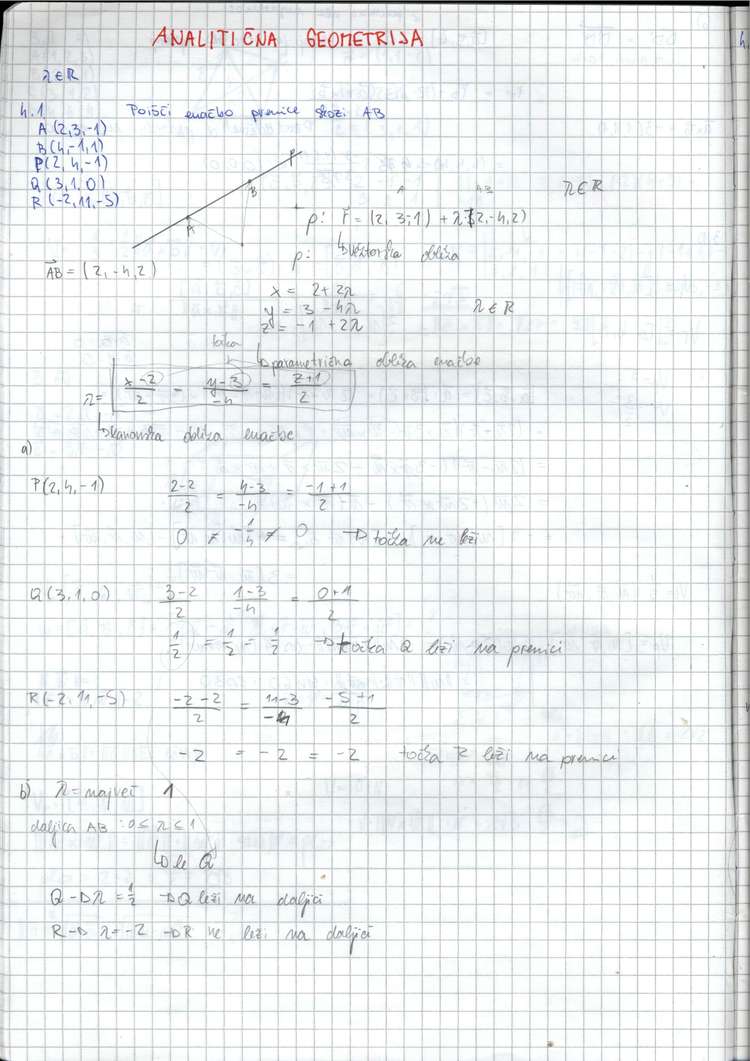 ANALITIČNA GEOMETRIJA
λ∈R
4.1 Poišči enačbo premice skozi AB
A(2,3,-1)
B(4,-1,1)
P(2,4,-1)
Q(3,1,0)
R(-2,11,-5)
A
B
P
A AB
p: r⃗ = (2,3,-1) + λ·(2,-4,2) λ∈R
p: ↳vektorska oblika
AB⃗ = (2,-4,2)
x = 2+2λ
y = 3 -4λ λ∈R
z = -1 +2λ
točka ↳parametrična oblika enačbe
λ= (x-2)/2 = (y-3)/-4 = (z+1)/2
↳kanonska oblika enačbe
a)
P(2,4,-1) (2-2)/2 = (4-3)/-4 = (-1+1)/2
0 ≠ -1/4 ≠ 0 → točka ne leži
Q(3,1,0) (3-2)/2 (1-3)/-4 = (0+1)/2
1/2 = 1/2 = 1/2 → točka Q leži na premici
R(-2,11,-5) (-2-2)/2 = (11-3)/-4 (-5+1)/2
-2 = -2 = -2 točka R leži na premici
b) λ= največ 1
daljica AB: 0≤λ≤1
↳ le Q
Q → λ = 1/2 → Q leži na daljici
R → λ = -2 → R ne leži na daljici